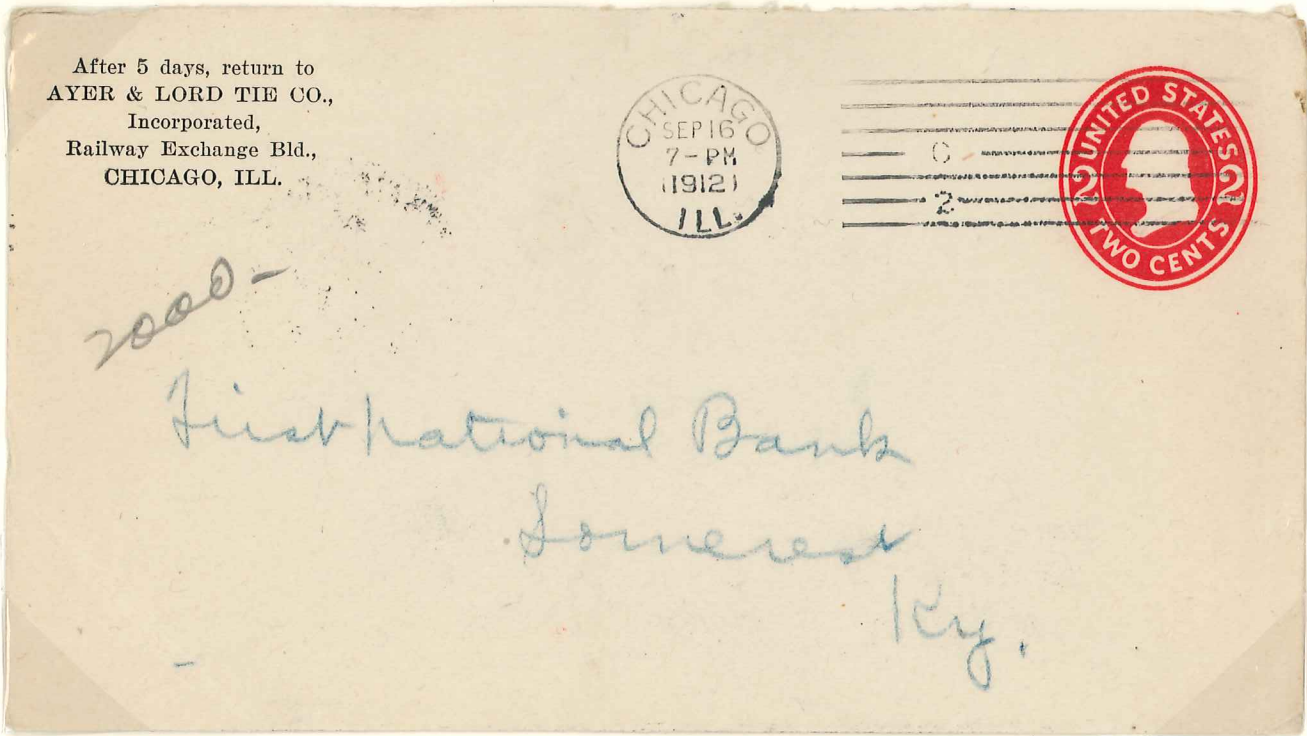 After 5 days, return to
AYER & LORD TIE CO.,
Incorporated,
Railway Exchange Bld.,
CHICAGO, ILL.
CHICAGO
SEP 16
7-PM
1912
ILL.
C
2
UNITED STATES
2 2
TWO CENTS
2000-
First National Bank
Somerset
Ky.